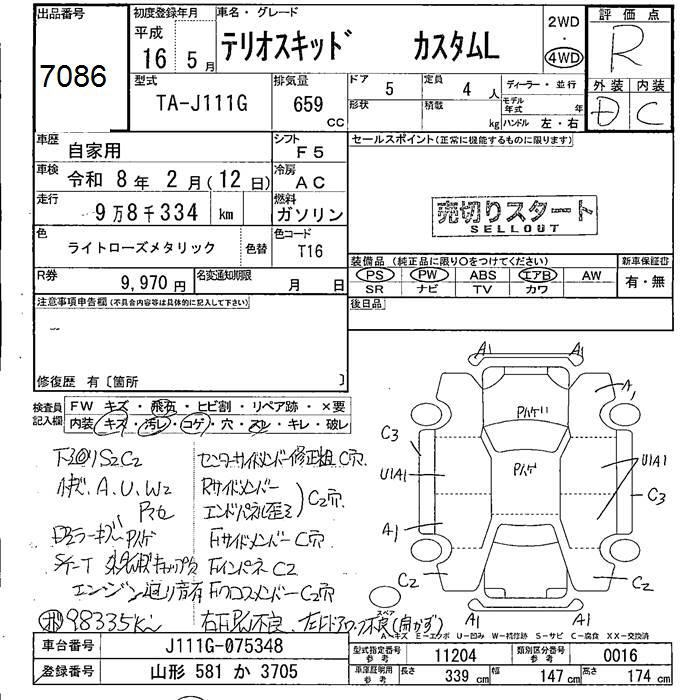 出品番号
7086
初度登録年月
平成
16 5月
車名・グレード
テリオスキッド カスタムL
2WD
・
4WD
評価点
R
型式
TA-J111G
排気量
659
cc
ドア
5
定員
4 人
形状
積載
kg
ディーラー・並行
モデル年式 年
ハンドル 左・右
外装 内装
D C
車歴
自家用
シフト
F5
車検
令和 8年 2月(12日)
冷房
AC
走行
9万8千334 km
燃料
ガソリン
色
ライトローズメタリック
色替
色コード
T16
R券
9,970円
名変通知期限
月 日
セールスポイント(正常に機能するものに限ります)
売切りスタート
SELLOUT
装備品 (純正品に限り○をつけてください)
新車保証書
PS PW ABS エアB AW
有・無
SR ナビ TV カワ
後日品
注意事項申告欄(不具合内容等は具体的に記入して下さい)
修復歴 有〔箇所 〕
検査員記入欄
FW キズ・飛石・ヒビ割・リペア跡・×要
内装 キズ・汚レ・コゲ・穴・スレ・キレ・破レ
下回りS2C2
センターサイドメンバー修正粗 C穴
A.U.W2
Rサイドメンバー
エンドパネル歪ミ
C2穴
Fサイドメンバー C穴
Fインパネ C2
エンジン廻り音有
Fクロスメンバー C2穴
98335km
A1 A1
A1
C3
U1A1
A1
C2
U1A1
C3
C2
A1 A1
スペア
A-キズ E-エクボ U-凹み W-補修跡 S-サビ C-腐食 XX-交換済
車台番号
J111G-075348
登録番号
山形 581 か 3705
型式指定番号
参考
11204
類別区分番号
参考
0016
車庫証明用
参考
長さ
339 cm
幅
147 cm
高さ
174 cm